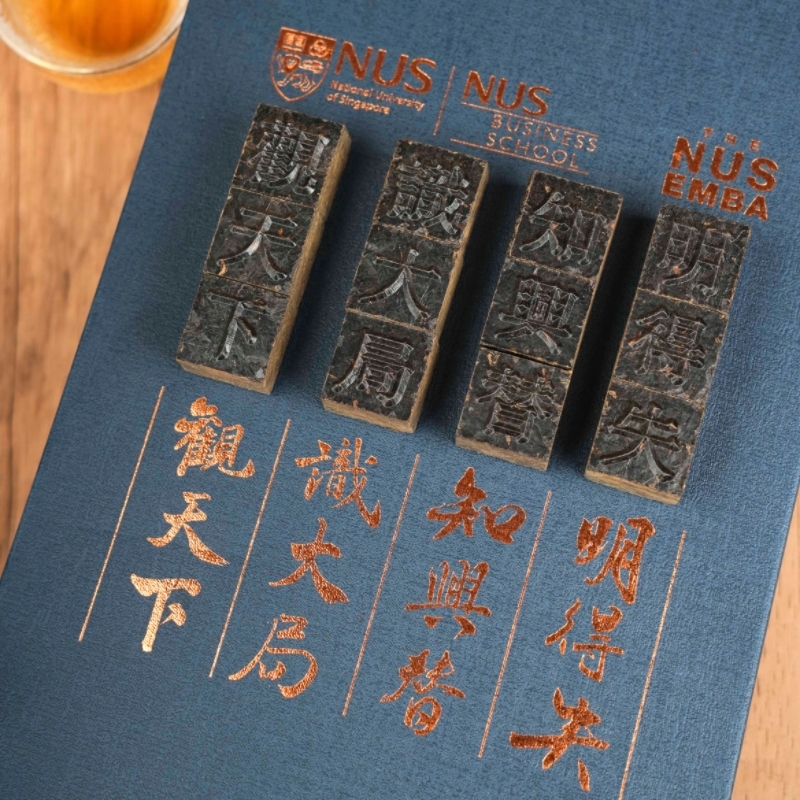 NUS
National University
of Singapore
NUS
BUSINESS
SCHOOL
THE
NUS
EMBA
觀天下
識大局
知興替
明得失
觀天下
識大局
知興替
明得失